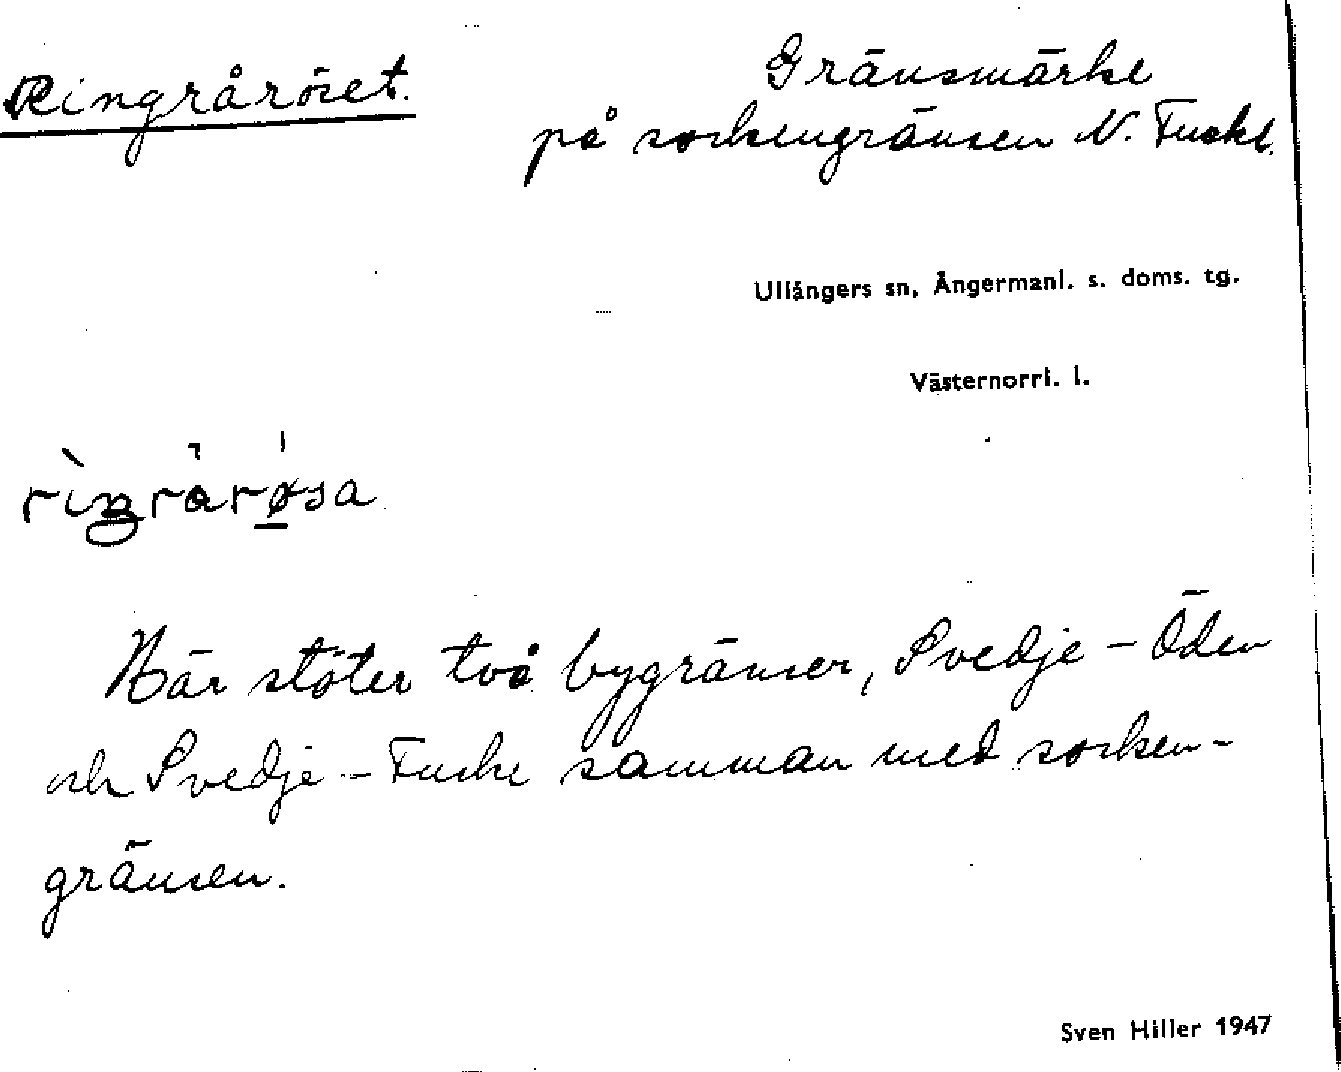 Ringråröset.
Gränsmärke
på sockengränsen N. Fuske.
Ullångers sn, Ångermanl. s. doms. tg.
Västernorrl. l.
rìŋrårøsa
Här stöter två bygränser, Svedje – Öden
och Svedje – Fuske samman med socken-
gränsen.
Sven Hiller 1947